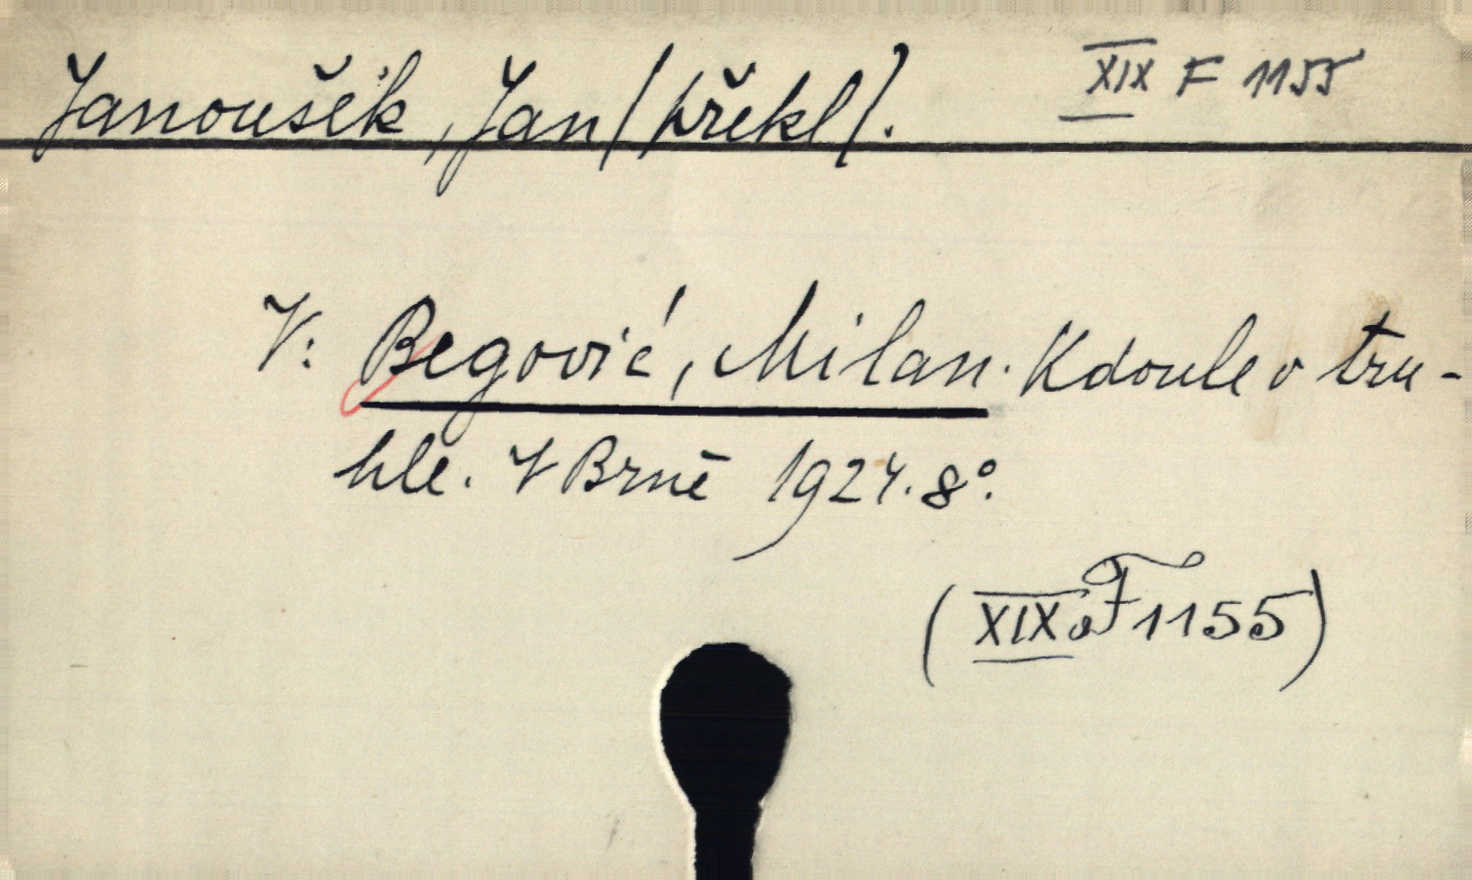 Janoušek, Jan /překl/. XIX F 1155
V: Begović, Milan. Kdoule v tru-
hle. V Brně 1924. 8°.
(XIX F 1155)